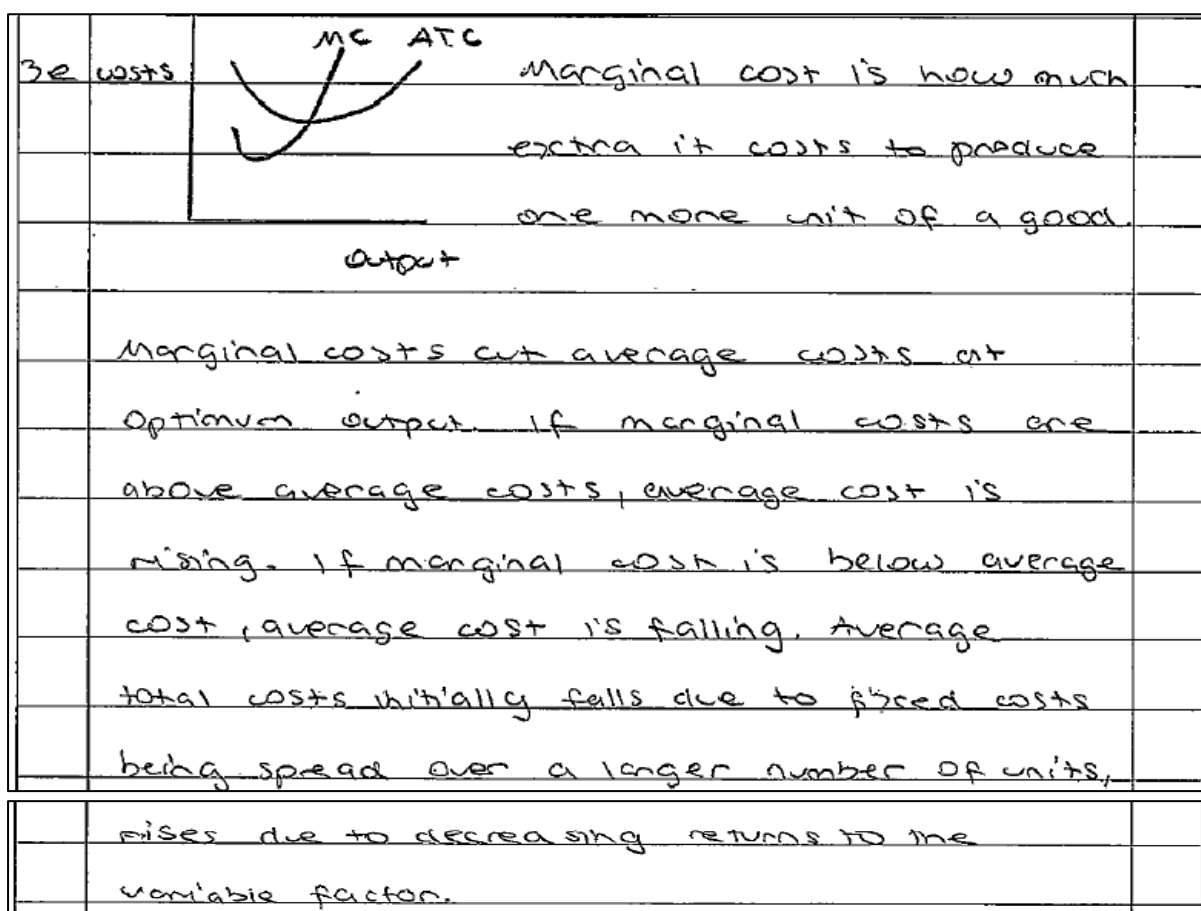 MC ATC
3e costs Marginal cost is how much
extra it costs to produce
one more unit of a good.
Output
Marginal costs cut average costs at
Optimum output. If marginal costs are
above average costs, average cost is
rising. If marginal cost is below average
cost, average cost is falling. Average
total costs initially falls due to fixed costs
being spread over a larger number of units,
rises due to decreasing returns to the
variable factor.